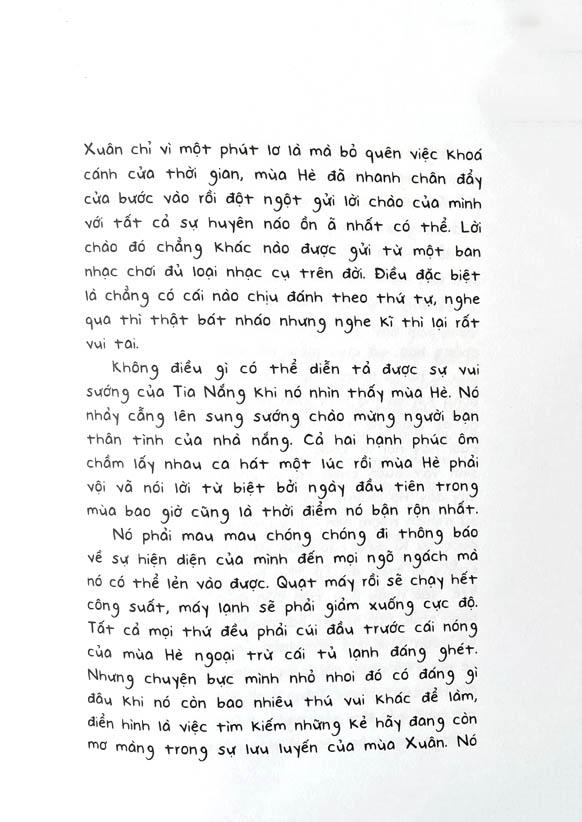 Xuân chỉ vì một phút lơ là mà bỏ quên việc khoá
cánh cửa thời gian, mùa Hè đã nhanh chân đẩy
cửa bước vào rồi đột ngột gửi lời chào của mình
với tất cả sự huyên náo ồn ã nhất có thể. Lời
chào đó chẳng khác nào được gửi từ một ban
nhạc chơi đủ loại nhạc cụ trên đời. Điều đặc biệt
là chẳng có cái nào chịu đánh theo thứ tự, nghe
qua thì thật bát nháo nhưng nghe kĩ thì lại rất
vui tai.
Không điều gì có thể diễn tả được sự vui
sướng của Tia Nắng khi nó nhìn thấy mùa Hè. Nó
nhảy cẫng lên sung sướng chào mừng người bạn
thân tình của nhà nắng. Cả hai hạnh phúc ôm
chầm lấy nhau ca hát một lúc rồi mùa Hè phải
vội vã nói lời từ biệt bởi ngày đầu tiên trong
mùa bao giờ cũng là thời điểm nó bận rộn nhất.
Nó phải mau mau chóng chóng đi thông báo
về sự hiện diện của mình đến mọi ngõ ngách mà
nó có thể lẻn vào được. Quạt máy rồi sẽ chạy hết
công suất, máy lạnh sẽ phải giảm xuống cực độ.
Tất cả mọi thứ đều phải cúi đầu trước cái nóng
của mùa Hè ngoại trừ cái tủ lạnh đáng ghét.
Nhưng chuyện bực mình nhỏ nhoi đó có đáng gì
đâu khi nó còn bao nhiêu thú vui khác để làm,
điển hình là việc tìm kiếm những kẻ hãy đang còn
mơ màng trong sự lưu luyến của mùa Xuân. Nó